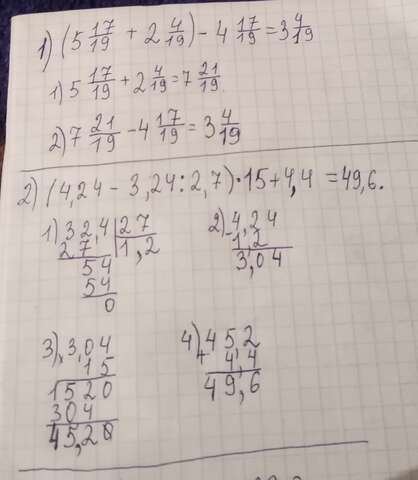 1) (5 17/19 + 2 4/19) - 4 17/19 = 3 4/19
1) 5 17/19 + 2 4/19 = 7 21/19.
2) 7 21/19 - 4 17/19 = 3 4/19
2) (4,24 - 3,24 : 2,7) · 15 + 4,4 = 49,6.
1) 32,4 | 27
27 | 1,2
54
54
0
2) 4,24
- 1,2
3,04
3) × 3,04
15
1520
304
45,20
4) 45,2
+ 4,4
49,6